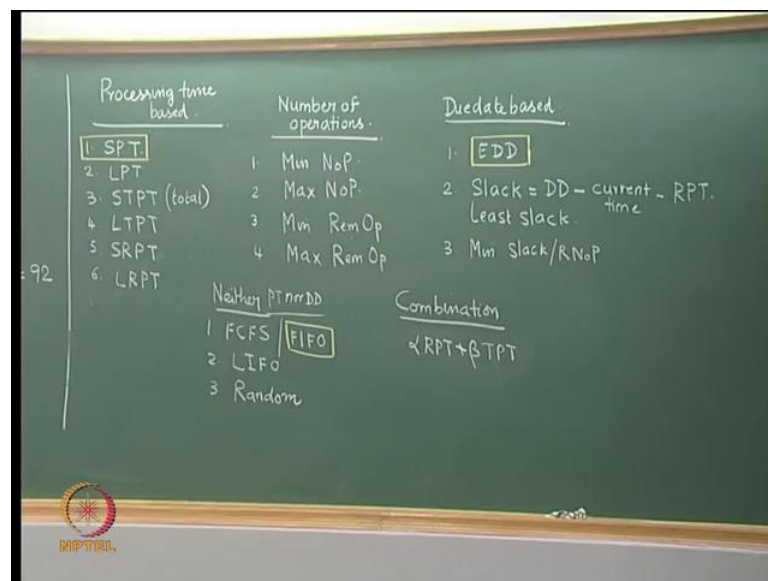 Processing time
based.
1. SPT.
2. LPT
3. STPT (total)
4 LTPT
5 SRPT
6. LRPT
= 92
Number of
operations.
1. Min NoP.
2 Max NoP.
3 Min Rem Op
4 Max Rem Op
Duedate based.
1. EDD
2. Slack = DD - current time - RPT.
Least slack.
3 Min Slack/RNoP
Neither PT nor DD
1 FCFS / FIFO
2 LIFO
3 Random
Combination
αRPT+βTPT
NPTEL